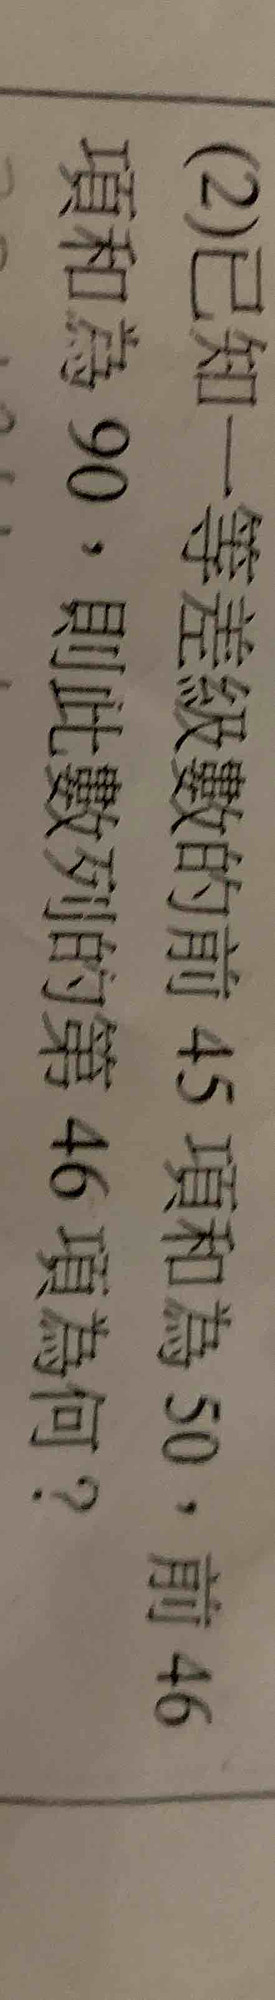 (2)已知一等差級數的前 45 項和為 50,前 46
項和為 90,則此數列的第 46 項為何?